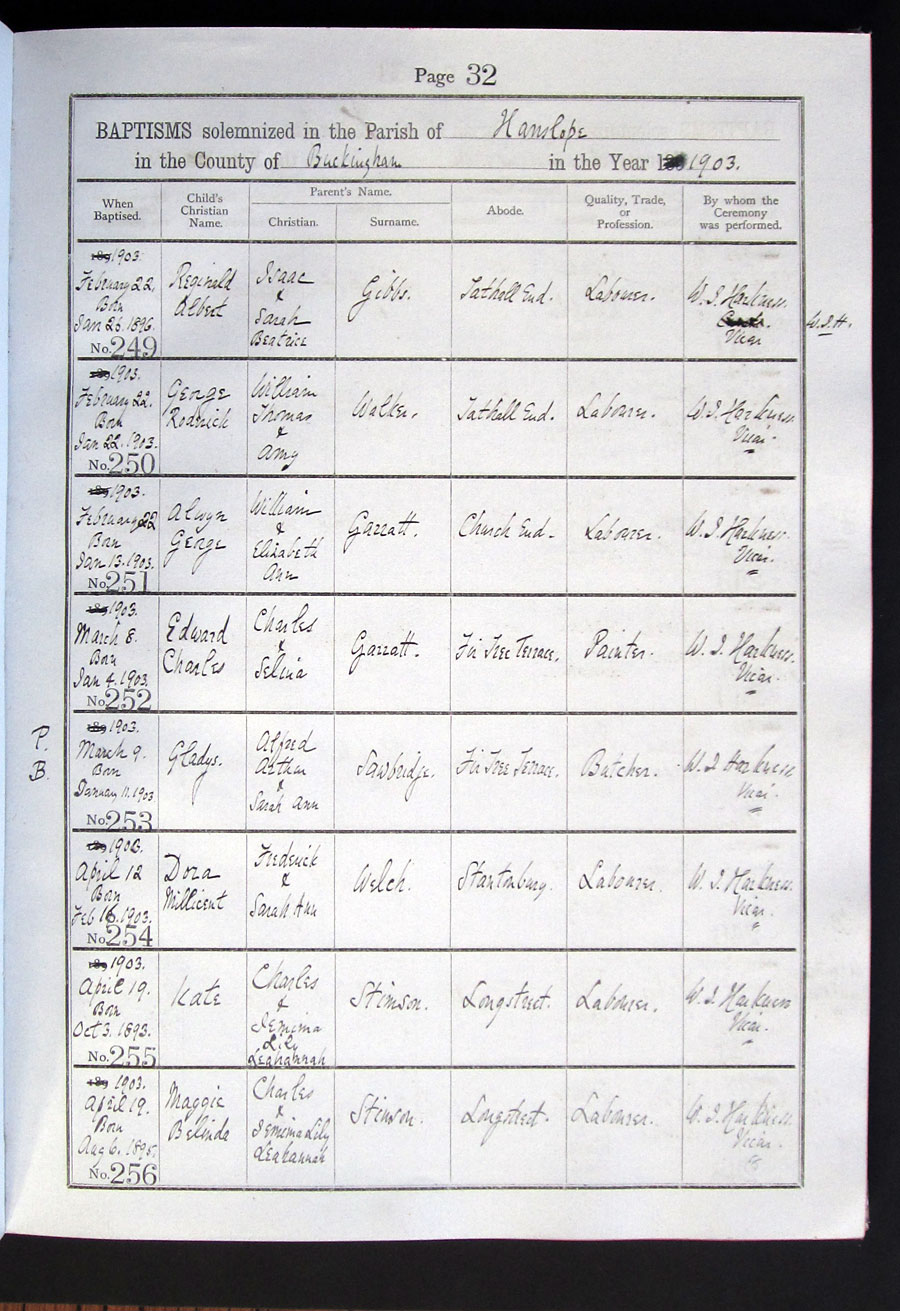 Page 32
BAPTISMS solemnized in the Parish of Hanslope
in the County of Buckingham in the Year 1903.
When Baptised.
Child's Christian Name.
Parent's Name.
Christian.
Surname.
Abode.
Quality, Trade, or Profession.
By whom the Ceremony was performed.
189 1903.
February 22.
Born
Jan 26. 1896.
No. 249
Reginald
Albert
Isaac
&
Sarah
Beatrice
Gibbs.
Tathall End.
Labourer.
W. J. Harkness.
Vicar
W.J.H.
189 1903.
February 22.
Born
Jan 22. 1903.
No. 250
George
Rodrick
William
Thomas
&
Amy
Walker.
Tathall End.
Labourer.
W. J. Harkness.
Vicar.
189 1903.
February 22
Born
Jan 13. 1903.
No. 251
Alwyn
George
William
&
Elizabeth
Ann
Garratt.
Church End.
Labourer.
W. J. Harkness.
Vicar.
189 1903.
March 8.
Born
Jan 4. 1903.
No. 252
Edward
Charles
Charles
&
Selina
Garratt.
Fir Tree Terrace.
Painter.
W. J. Harkness.
Vicar.
P.
B.
189 1903.
March 9.
Born
January 11. 1903
No. 253
Gladys.
Alfred
Arthur
&
Sarah Ann
Sawbridge.
Fir Tree Terrace.
Butcher.
W. J. Harkness
Vicar.
189 1903.
April 12
Born
Feb 16. 1903.
No. 254
Dora
Millicent
Frederick
&
Sarah Ann
Welch.
Stantonbury.
Labourer.
W. J. Harkness.
Vicar.
189 1903.
April 19.
Born
Oct 3. 1893.
No. 255
Kate
Charles
&
Jemima
Lily
Leahannah
Stimson.
Longstreet.
Labourer.
W. J. Harkness
Vicar.
189 1903.
April 19.
Born
Aug 6. 1895.
No. 256
Maggie
Belinda
Charles
&
Jemima Lily
Leahannah
Stimson.
Longstreet.
Labourer.
W. J. Harkness.
Vicar.